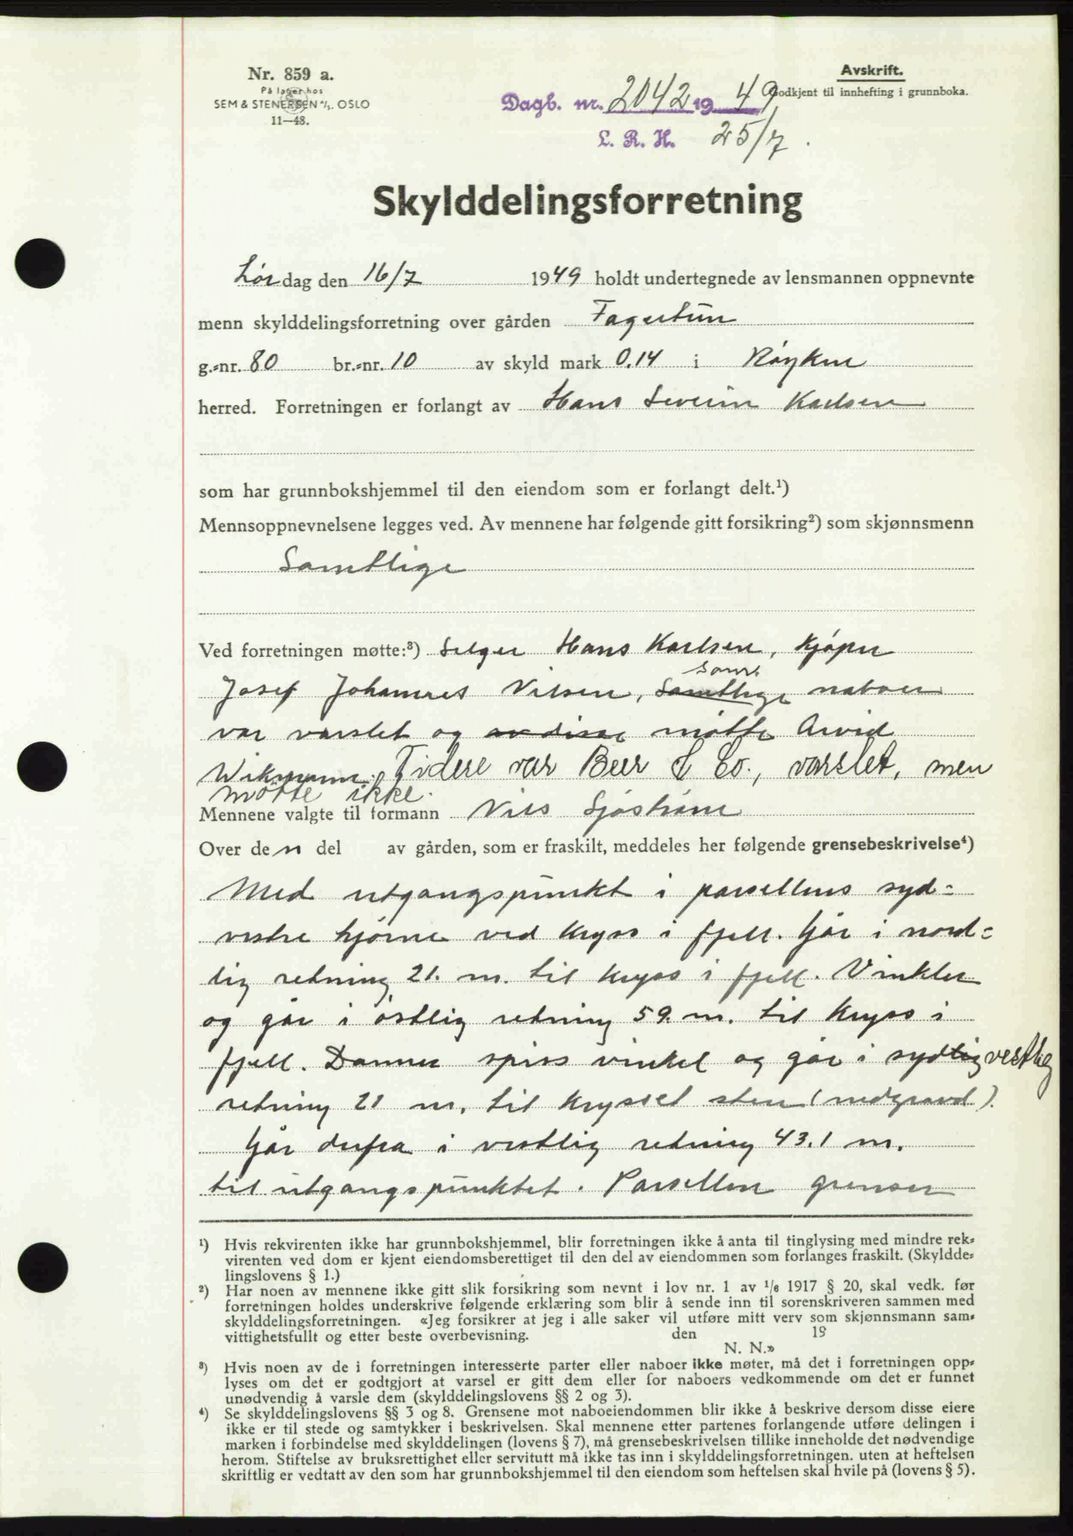 Nr. 859 a.
På lager hos
SEM & STENERSEN A/S. OSLO
11—48.
Avskrift.
Godkjent til innhefting i grunnboka.
Dagb. nr. 2042 1949
L. R. H. 25/7.
Skylddelingsforretning
Lørdag den 16/7 1949 holdt undertegnede av lensmannen oppnevnte
menn skylddelingsforretning over gården Fagertun
g.-nr. 80 br.-nr. 10 av skyld mark 0.14 i Røyken
herred. Forretningen er forlangt av Hans Severin Karlsen
som har grunnbokshjemmel til den eiendom som er forlangt delt.¹)
Mennsoppnevnelsene legges ved. Av mennene har følgende gitt forsikring²) som skjønnsmenn
Samtlige
Ved forretningen møtte:³) Selger Hans Karlsen, kjøper
Josef Johannes Nilsen, Samtlige naboer
var varslet og av disse møtte Arvid
Wikmann. Videre var Beer & Co., varslet, men
møtte ikke.
Mennene valgte til formann Nils Sjøstrøm
Over den del av gården, som er fraskilt, meddeles her følgende grensebeskrivelse⁴)
Med utgangspunkt i parsellens syd-
vestre hjørne ved kryss i fjell. Går i nord-
lig retning 21. m. til kryss i fjell. Vinkler
og går i østlig retning 59. m. til kryss i
fjell. Danner spiss vinkel og går i sydligvestlig
retning 21 m. til krysset sten (nedgravd).
Går derfra i vestlig retning 43.1 m.
til utgangspunktet. Parsellen grenser
¹) Hvis rekvirenten ikke har grunnbokshjemmel, blir forretningen ikke å anta til tinglysing med mindre rek-
virenten ved dom er kjent eiendomsberettiget til den del av eiendommen som forlanges fraskilt. (Skyldde-
lingslovens § 1.)
²) Har noen av mennene ikke gitt slik forsikring som nevnt i lov nr. 1 av 1/6 1917 § 20, skal vedk. før
forretningen holdes underskrive følgende erklæring som blir å sende inn til sorenskriveren sammen med
skylddelingsforretningen. «Jeg forsikrer at jeg i alle saker vil utføre mitt verv som skjønnsmann sam-
vittighetsfullt og etter beste overbevisning. den 19
N. N.»
³) Hvis noen av de i forretningen interesserte parter eller naboer ikke møter, må det i forretningen opp-
lyses om det er godtgjort at varsel er gitt dem eller for naboers vedkommende om det er funnet
unødvendig å varsle dem (skylddelingslovens §§ 2 og 3).
⁴) Se skylddelingslovens §§ 3 og 8. Grensene mot naboeiendommen blir ikke å beskrive dersom disse eiere
ikke er til stede og samtykker i beskrivelsen. Skal mennene etter partenes forlangende utføre delingen i
marken i forbindelse med skylddelingen (lovens § 7), må grensebeskrivelsen tillike inneholde det nødvendige
herom. Stiftelse av bruksrettighet eller servitutt må ikke tas inn i skylddelingsforretningen. uten at heftelsen
skriftlig er vedtatt av den som har grunnbokshjemmel til den eiendom som heftelsen skal hvile på (lovens § 5).